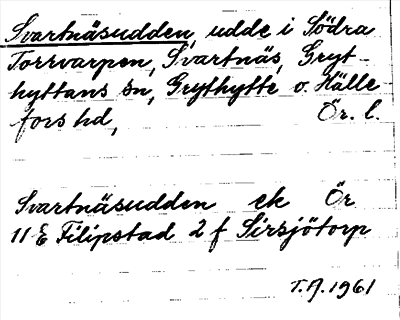 Svartnäsudden, udde i Södra
Torrvarpen, Svartnäs, Gryt-
hyttans sn, Grythytte o. Hälle
fors hd, Ör. l.
Svartnäsudden ek Ör
11 E Filipstad 2 f Sirsjötorp
T.A. 1961